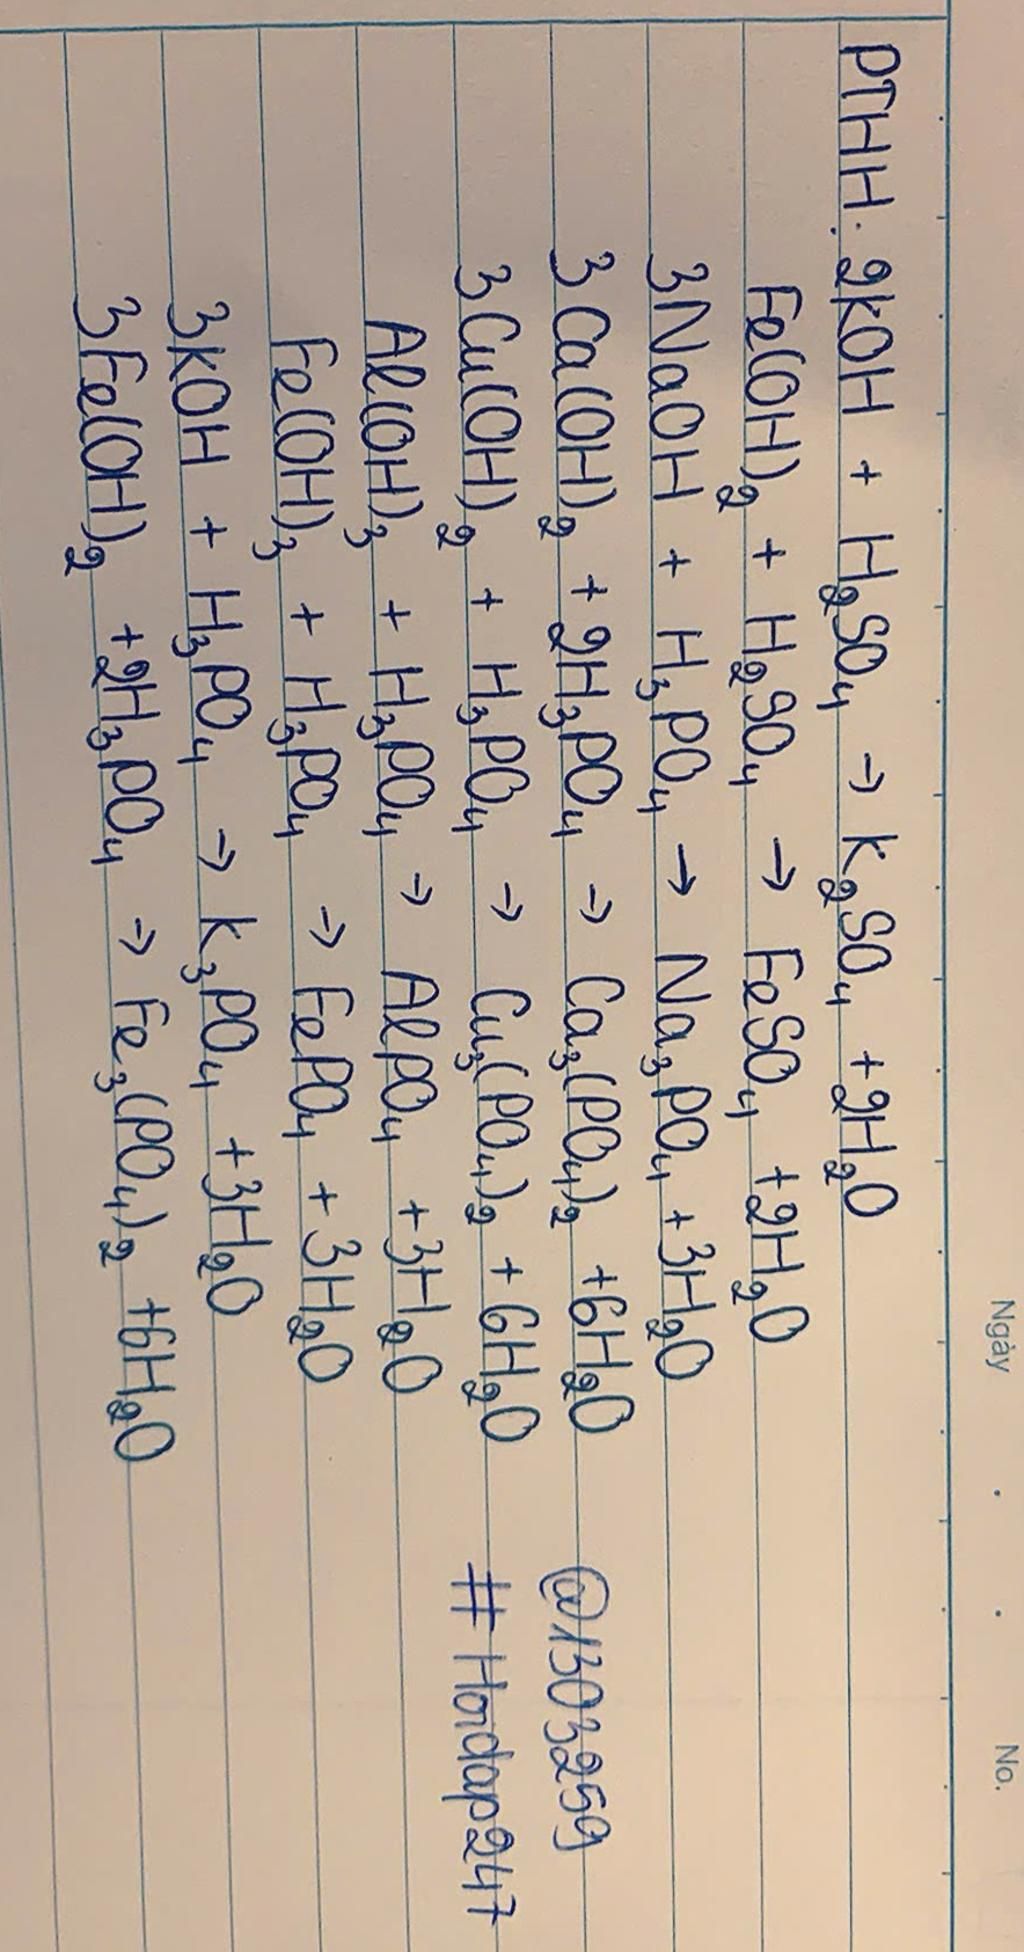 Ngày . . No.
PTHH: 2KOH + H₂SO₄ → K₂SO₄ + 2H₂O
Fe(OH)₂ + H₂SO₄ → FeSO₄ + 2H₂O
3NaOH + H₃PO₄ → Na₃PO₄ + 3H₂O
3Ca(OH)₂ + 2H₃PO₄ → Ca₃(PO₄)₂ + 6H₂O @1303259
3Cu(OH)₂ + H₃PO₄ → Cu₃(PO₄)₂ + 6H₂O # Hoidap247
Al(OH)₃ + H₃PO₄ → AlPO₄ + 3H₂O
Fe(OH)₃ + H₃PO₄ → FePO₄ + 3H₂O
3KOH + H₃PO₄ → K₃PO₄ + 3H₂O
3Fe(OH)₂ + 2H₃PO₄ → Fe₃(PO₄)₂ + 6H₂O